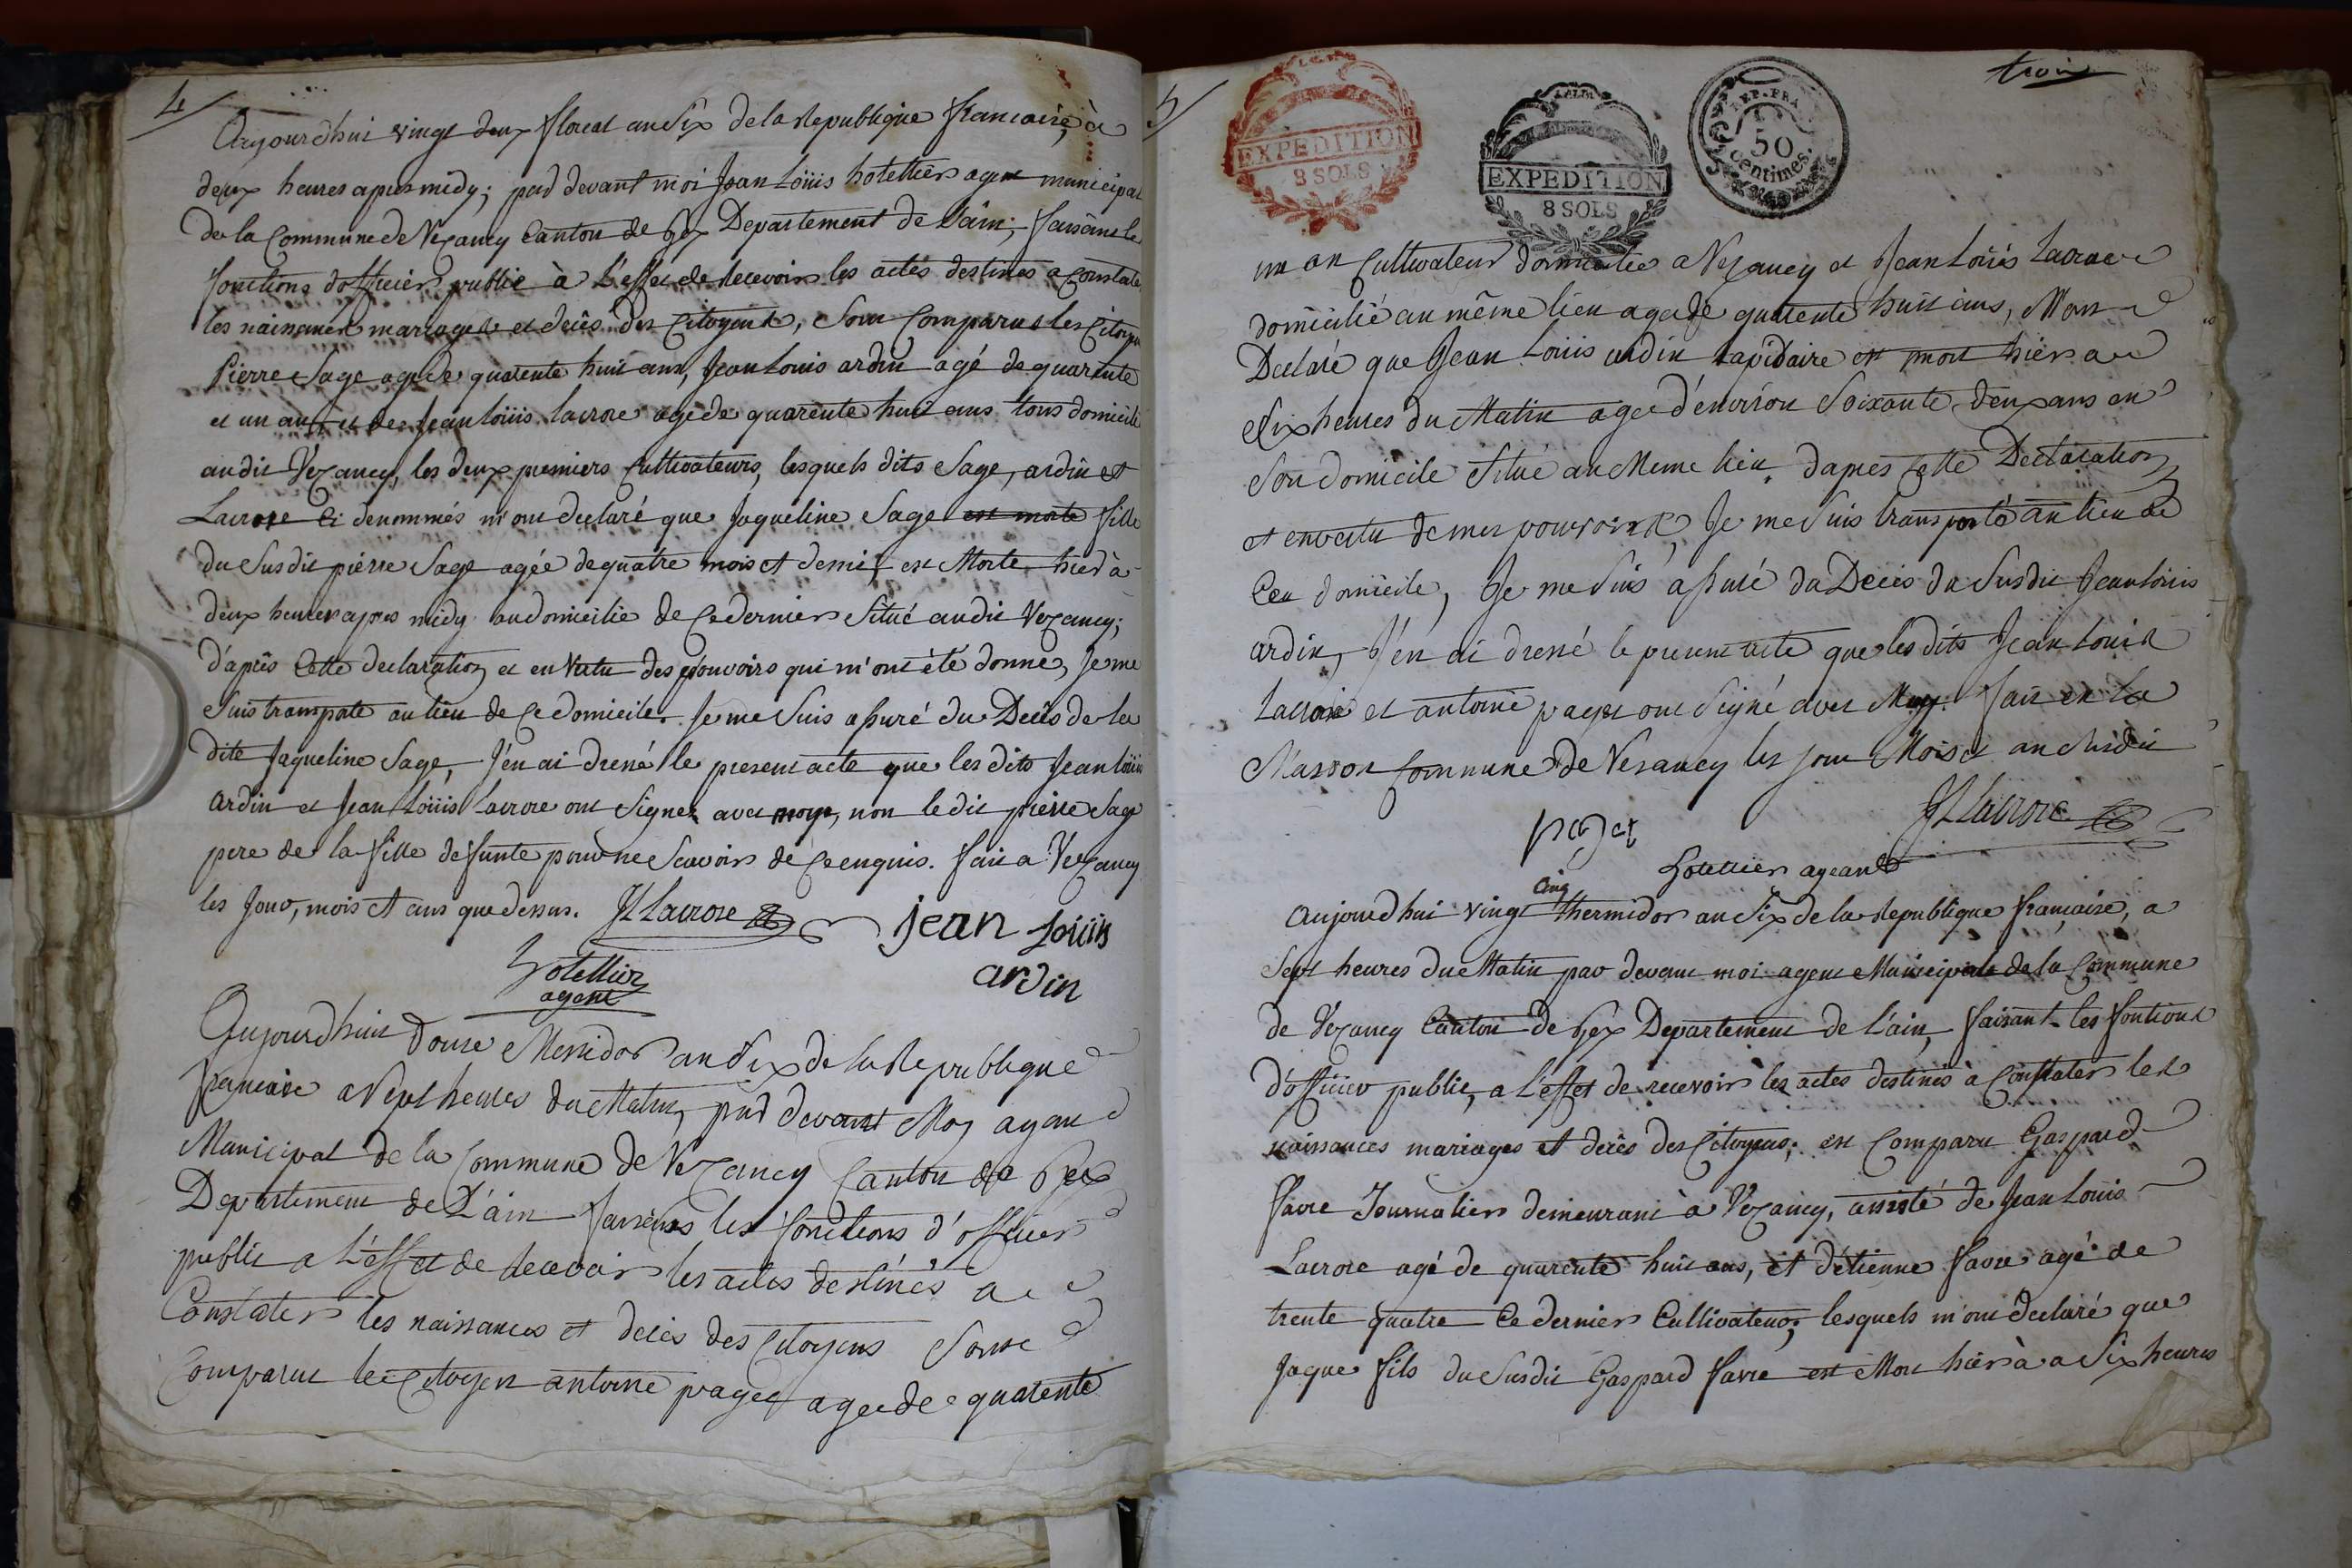 4
Aujourdhui vingt deux floreal an Six de la Republique francaise, à
deux heures apres midy; pard devant moi Jean Loüis hotellier agent municipal
de la Commune de Vezancy Canton de Gex Departement de L'ain; faisant les
fonctions d'officier public à L'effet de Recevoir les actes destinés a Constater
les naissances mariages et decès des Citoyens, Sont Comparus les Citoyens
Pierre Sage agé de quarente huit ans, Jean Louis ardin agé de quarente
et un ans et de Jean loüis lacroze agé de quarente huit ans tous domicilié
audit Vezancy, les deux premiers Cultivateurs, lesquels dits Sage, ardin et
Lacroze Ci denommés m'ont declaré que Jaqueline Sage est morte fille
du Susdit pierre Sage agée de quatre mois et demi, est Morte hier à
deux heures apres midy au domicilie de Ce dernier Situé audit Vezancy;
d'après Cette declaration et en Vertu des pouvoirs qui m'ont été donne, Je me
Suis transporté au lieu de Ce domicile. Je me Suis assuré du Decès de la
dite Jaqueline Sage, J'en ai dressé le present acte que les dits Jean loüis
ardin et Jean Loüis lacroze ont Signez avec moy, non le dit pierre Sage
pere de la fille defunte pour ne Scavoir de Ce enquis. fait a Vezancy
les Jour, mois et ans que dessus. JL Lacroze
Jean Loüis
ardin
hotellier
agent
Aujourdhuit Douze Messidor an Six de la Republique
francaise a Sept heures du Matin, pard devant Moy agant
Municipal de la Commune de Vezancy Canton de Gex
Departement de L'ain faisens les fonctions d'officier
public a L'effet de Recevoir les actes destinés a
Constater les naissances et decès des Citoyens Sont
Comparut le Citoyen antoine paget agé de quarente
5
trois
EXPEDITION
8 SOLS
EXPEDITION
8 SOLS
REP. FRA.
50
centimes.
un an Cultivateur domicilié a Vezancy et Jean Loüis Lacroze
domicilié au même lieu agé de quarente huit ans, Mont
Declaré que Jean Loüis ardin Lapidaire est mort hier a
Six heures du Matin agé d'environ Soixante deux ans en
Son domicile Situé au Meme lieu. dapres Cette Declaration
et en vertu de mes pouvoirs, Je me Suis transporté au lieu de
Ceu domicile, Je me Suis assuré du Decès du Susdit Jean loüis
ardin, J'en ai dressé le present acte que les dits Jean Louis
Lacroze et antoine paget ont Signé avec Moy. fait en la
Maison Commune de Vesancy les jour Mois et an Susdit
paget
JL Lacroze
hotellier agean
Aujourdhui vingt cinq thermidor an Six de la Republique francaise, a
Sept heures du Matin par devant moi agent Municipale de la Commune
de Vezancy Canton de Gex Departement de L'ain, faisant les fontions
d'officier public, a L'effet de recevoir les actes destinés à Constater les
naissances mariages et decès des Citoyens; est Comparu Gaspard
favre Journalier demeurant à Vezancy, assisté de Jean Louis
Lacroze agé de quarente huit ans, et d'etienne favre agé de
trente quatre Ce dernier Cultivateur, lesquels m'ont declaré que
Jaque fils du Susdit Gaspard favre est Mort hier à a Six heures